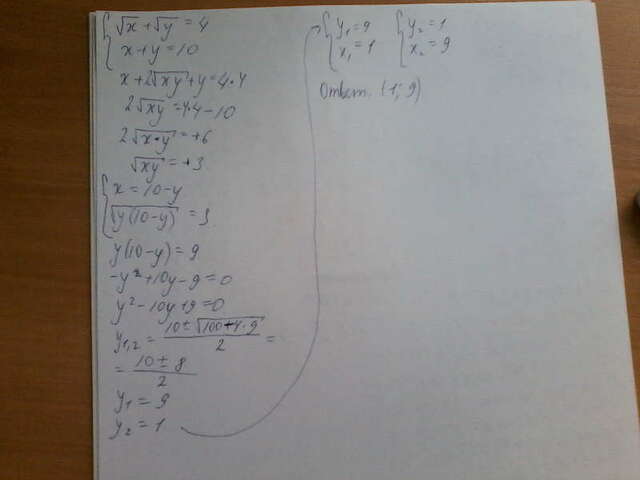 { √x + √y = 4
x + y = 10
x + 2√xy + y = 4·4
2√xy = 4·4 - 10
2√x·y = +6
√xy = +3
{ x = 10 - y
√y(10-y) = 3
y(10-y) = 9
-y² + 10y - 9 = 0
y² - 10y + 9 = 0
y1,2 = (10 ± √100-4·9) / 2 =
= (10 ± 8) / 2
y1 = 9
y2 = 1
{ y1 = 9 { y2 = 1
x1 = 1 x2 = 9
Ответ. (1; 9)